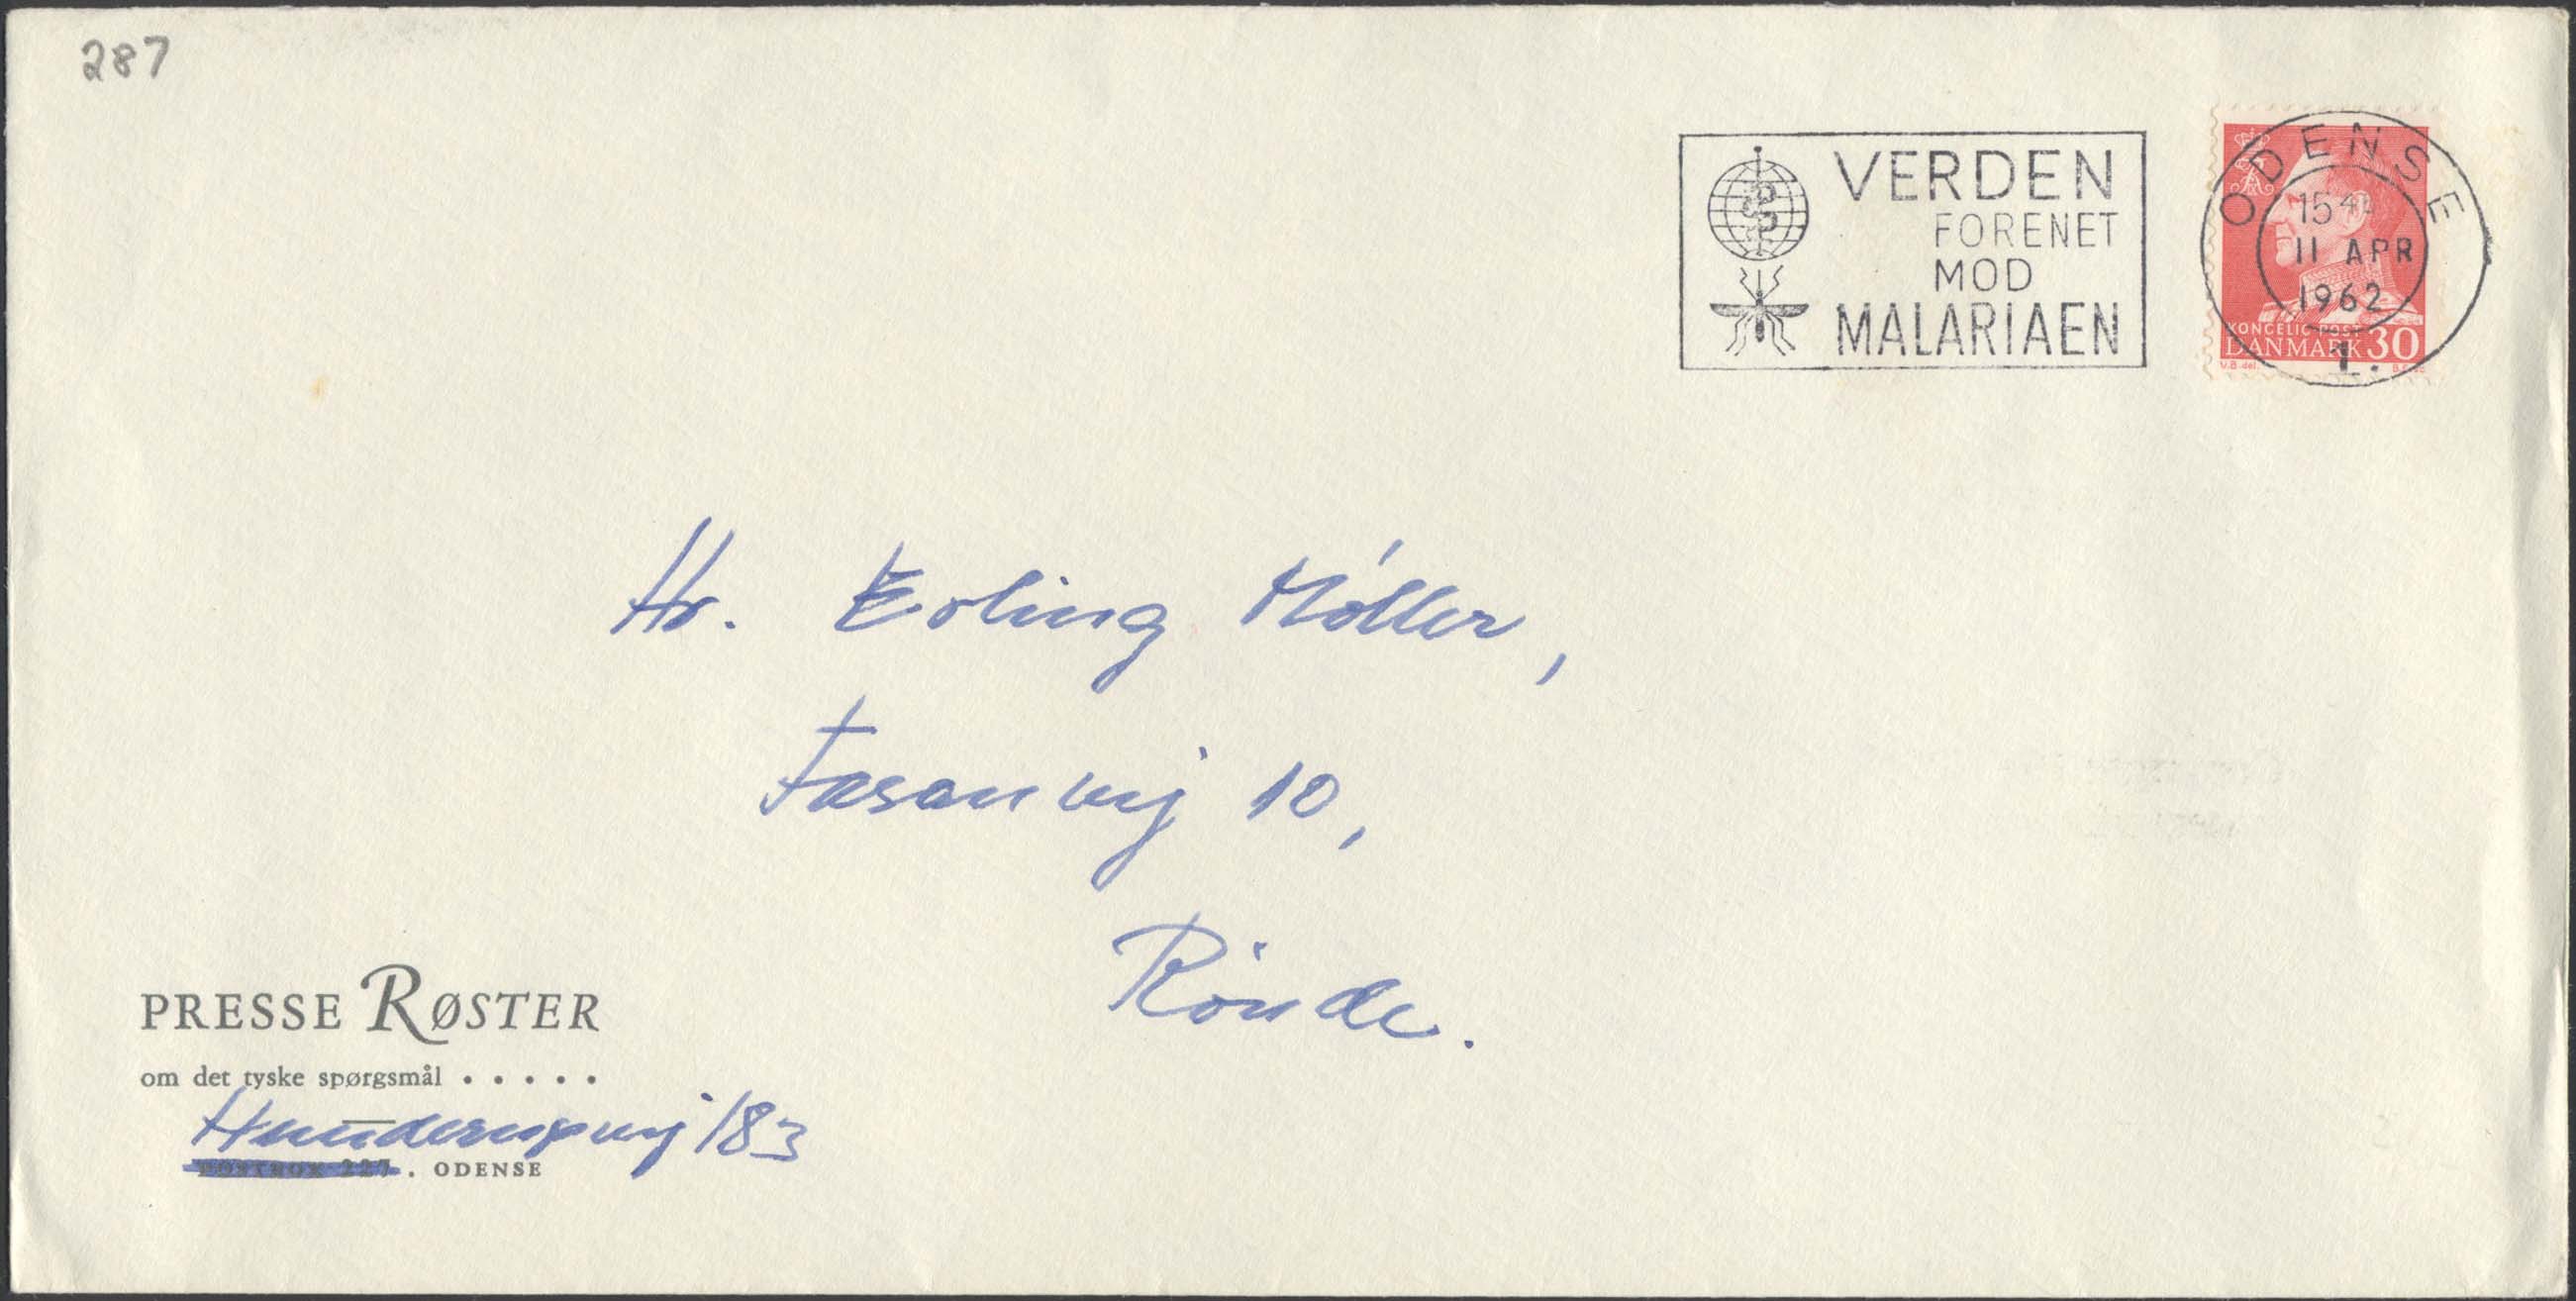 287
VERDEN
FORENET
MOD
MALARIAEN
ODENSE
15
11 APR
1962
1.
KONGELIG POST
DANMARK 30
Hr. Erling Møller,
Fasanvej 10,
Rønde.
PRESSE RØSTER
om det tyske spørgsmål . . . . .
Hunderupvej 183
. ODENSE